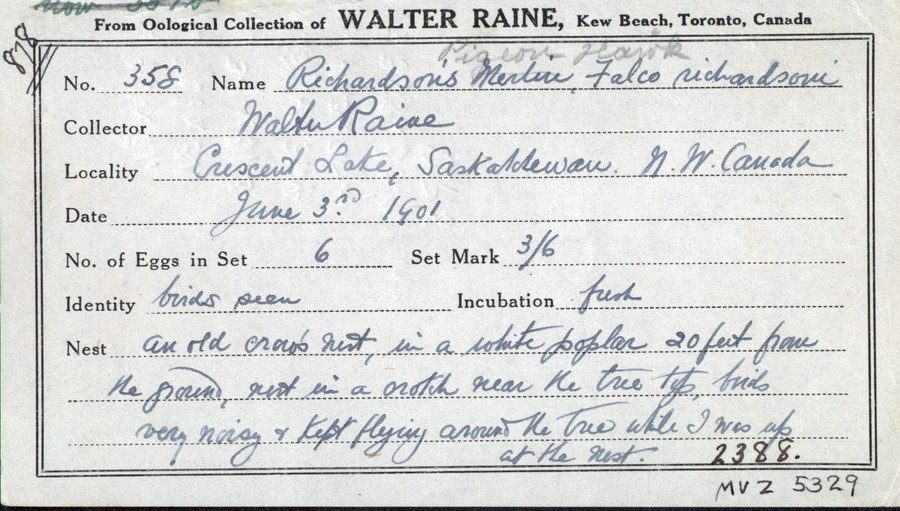 From Oological Collection of WALTER RAINE, Kew Beach, Toronto, Canada
878
Pigeon Hawk
No. 358 Name Richardson's Merlin, Falco richardsoni
Collector Walter Raine
Locality Crescent Lake, Saskatchewan. N.W. Canada
Date June 3rd 1901
No. of Eggs in Set 6 Set Mark 3/6
Identity birds seen Incubation fresh
Nest an old crow's nest, in a white poplar 20 feet from
the ground, nest in a crotch near the tree top, birds
very noisy & kept flying around the tree while I was up
at the nest. 2388.
MVZ 5329